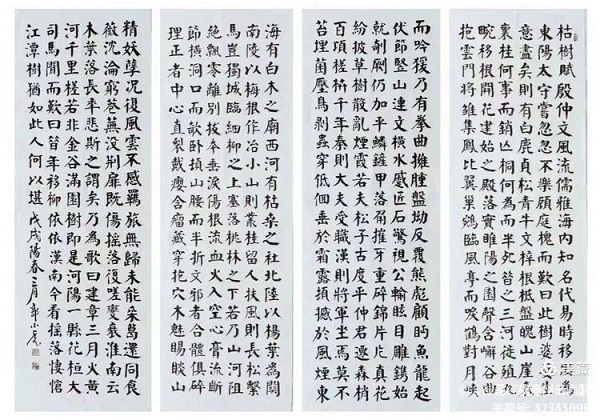 枯樹賦殷仲文風流儒雅海内知名代易時移出為
東陽太守嘗忽忽不樂顧庭槐而歎曰此樹婆娑生
意盡矣則有白鹿貞松青牛文梓根柢盤魄山崖表
裏桂何事而銷亡桐何為而半死昔之三河徙殖九
畹移根開花建始之殿落實睢陽之園聲含嶰谷曲
抱雲門將雛集鳳比翼巢鴛臨風亭而唳鶴對月峽
而吟猨乃有拳曲擁腫盤坳反覆熊彪顧眄魚龍起
伏節豎山連文横水感匠石驚視公輸眩目雕鐫始
就剞劂仍加平鱗鏟甲落角摧牙重碎錦片片真花
紛披草樹散亂煙霞若夫松子古度平仲君遷森梢
百頃槎枿千年秦則大夫受職漢則將軍坐焉莫不
苔埋菌壓鳥剥蟲穿低個垂於霜露撼於風煙東
海有白木之廟西河有枯桑之社北陸以楊葉為關
南陵以梅根作冶小山則叢桂留人扶風則長松繫
馬豈獨城臨細柳之上塞落桃林之下若乃山河阻
絶飄零離別拔本垂淚傷根流血火入空心膏流斷
節橫洞口而欹臥頓山腰而半折文邪者合體俱碎
理正者中心直裂戴癭含瘤藏穿抱穴木魅睗睒山
精妖孽况復風雲不感羈旅無歸未能采葛還同食
薇沉淪窮巷蕪没荆扉既傷摇落復嗟變衰淮南云
木葉落長年悲斯之謂矣乃為歌曰建章三月火黄
河千里槎若非金谷滿園樹即是河陽一縣花桓大
司馬聞而歎曰昔年移柳依依漢南今看摇落悽愴
江潭樹猶如此人何以堪戊戌陽春三月
美篇